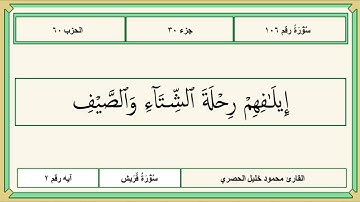 سُوْرَةُ رقم ١٠٦
جزء ٣٠
الحزب ٦٠
إِۦلَٰفِهِمْ رِحْلَةَ ٱلشِّتَآءِ وَٱلصَّيْفِ
القارئ محمود خليل الحصري
سُوْرَةُ قُرَيش
آيه رقم ٢